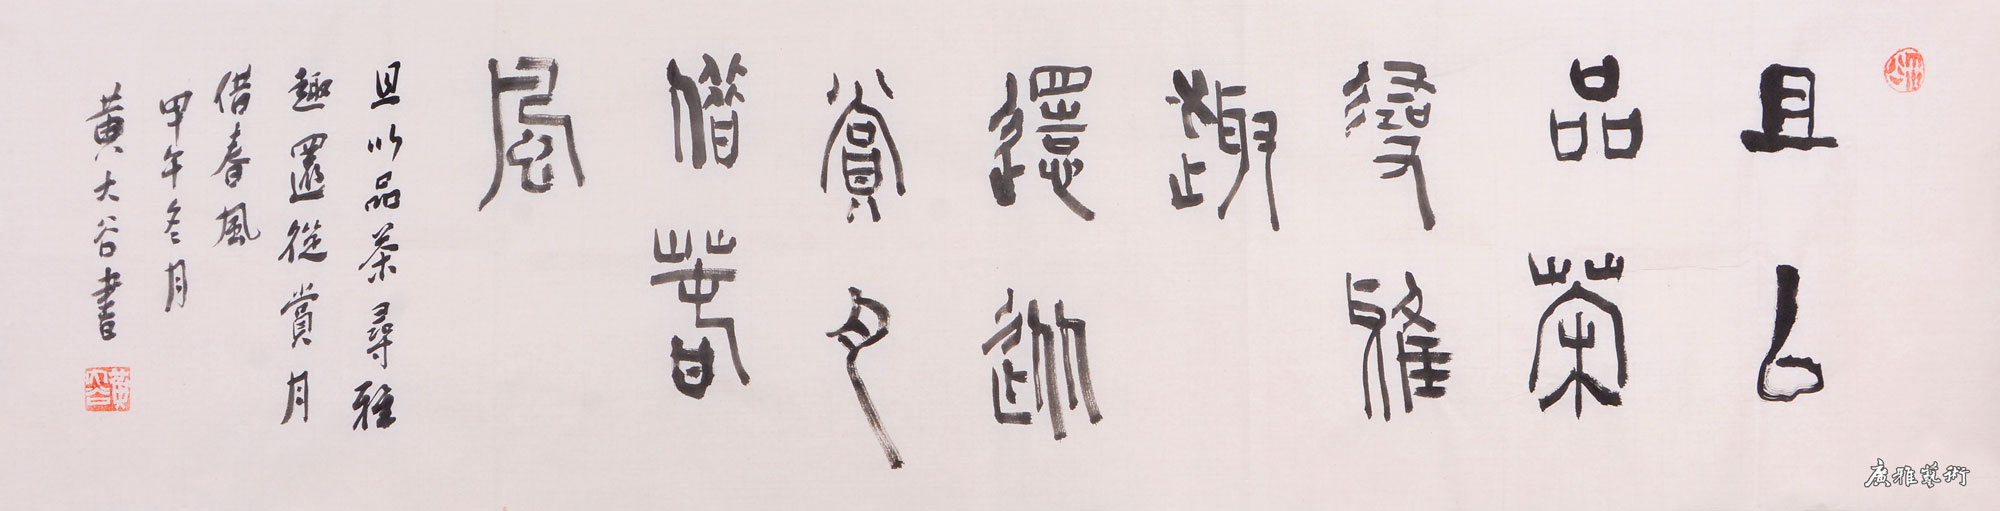 且以
品茶
尋雅
趣
還從
賞月
借春
風
且以品茶尋雅
趣還從賞月
借春風
甲午冬月
黃大谷書
黃大谷
廣雅藝術